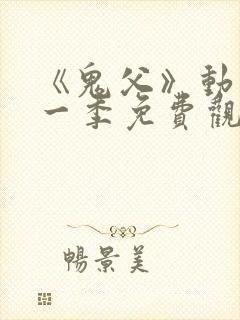 《鬼父》動
一季免費觀
暢景美